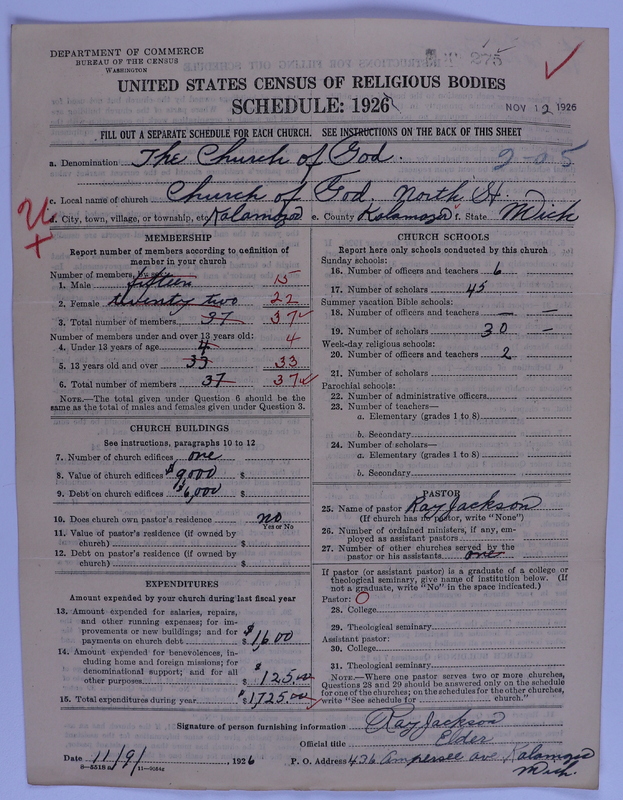 DEPARTMENT OF COMMERCE
BUREAU OF THE CENSUS
WASHINGTON
275
UNITED STATES CENSUS OF RELIGIOUS BODIES
SCHEDULE: 1926
NOV 12 1926
FILL OUT A SEPARATE SCHEDULE FOR EACH CHURCH. SEE INSTRUCTIONS ON THE BACK OF THIS SHEET
a. Denomination The Church of God. 2-05
c. Local name of church Church of God North St.
d. City, town, village, or township, etc. Kalamazoo e. County Kalamazoo f. State Mich
MEMBERSHIP
Report number of members according to definition of
member in your church
Number of members by sex:
1. Male fifteen 15
2. Female twenty two 22
3. Total number of members 37 37
Number of members under and over 13 years old:
4. Under 13 years of age 4 4
5. 13 years old and over 33 33
6. Total number of members 37 37
NOTE.—The total given under Question 6 should be
same as the total of males and females given under Question 3.
CHURCH BUILDINGS
See instructions, paragraphs 10 to 12
7. Number of church edifices one
8. Value of church edifices $9,000 $
9. Debt on church edifices $6,000 $
10. Does church own pastor's residence no
Yes or No
11. Value of pastor's residence (if owned by
church) $
12. Debt on pastor's residence (if owned by
church) $
EXPENDITURES
Amount expended by church during last fiscal year
13. Amount expended for salaries, repairs,
and other running expenses; for im-
provements or new buildings; and for
payments on church debt $1600
14. Amount expended for benevolences, in-
cluding home and foreign missions; for
denominational support; and for all
other purposes $125.00
15. Total expenditures during year $1,725.00
CHURCH SCHOOLS
Report here only schools conducted by this church
Sunday schools:
16. Number of officers and teachers 6
17. Number of scholars 45
Summer vacation Bible schools:
18. Number of officers and teachers — —
19. Number of scholars 30 —
Week-day religious schools:
20. Number of officers and teachers 2
21. Number of scholars
Parochial schools:
22. Number of administrative officers
23. Number of teachers—
a. Elementary (grades 1 to 8)
b. Secondary
24. Number of scholars—
a. Elementary (grades 1 to 8)
b. Secondary
PASTOR
25. Name of pastor Ray Jackson
(If church has no pastor, write "None")
26. Number of ordained ministers, if any, em-
ployed as assistant pastors
27. Number of other churches served by the
pastor or his assistants one
If pastor (or assistant pastor) is a graduate of a college or
theological seminary, give name of institution below. (If
not a graduate, write "No" in the space indicated.)
Pastor: O
28. College
29. Theological seminary
Assistant pastor:
30. College
31. Theological seminary
NOTE.—Where one pastor serves two or more churches,
Questions 28 and 29 should be answered only on the schedule
for one of the churches; on the schedules for the other churches,
write "See schedule for church."
Signature of person furnishing information Ray Jackson
Official title Elder
Date 11/9/ 1926 P. O. Address 436 Ampersee ave Kalamazoo
Mich.